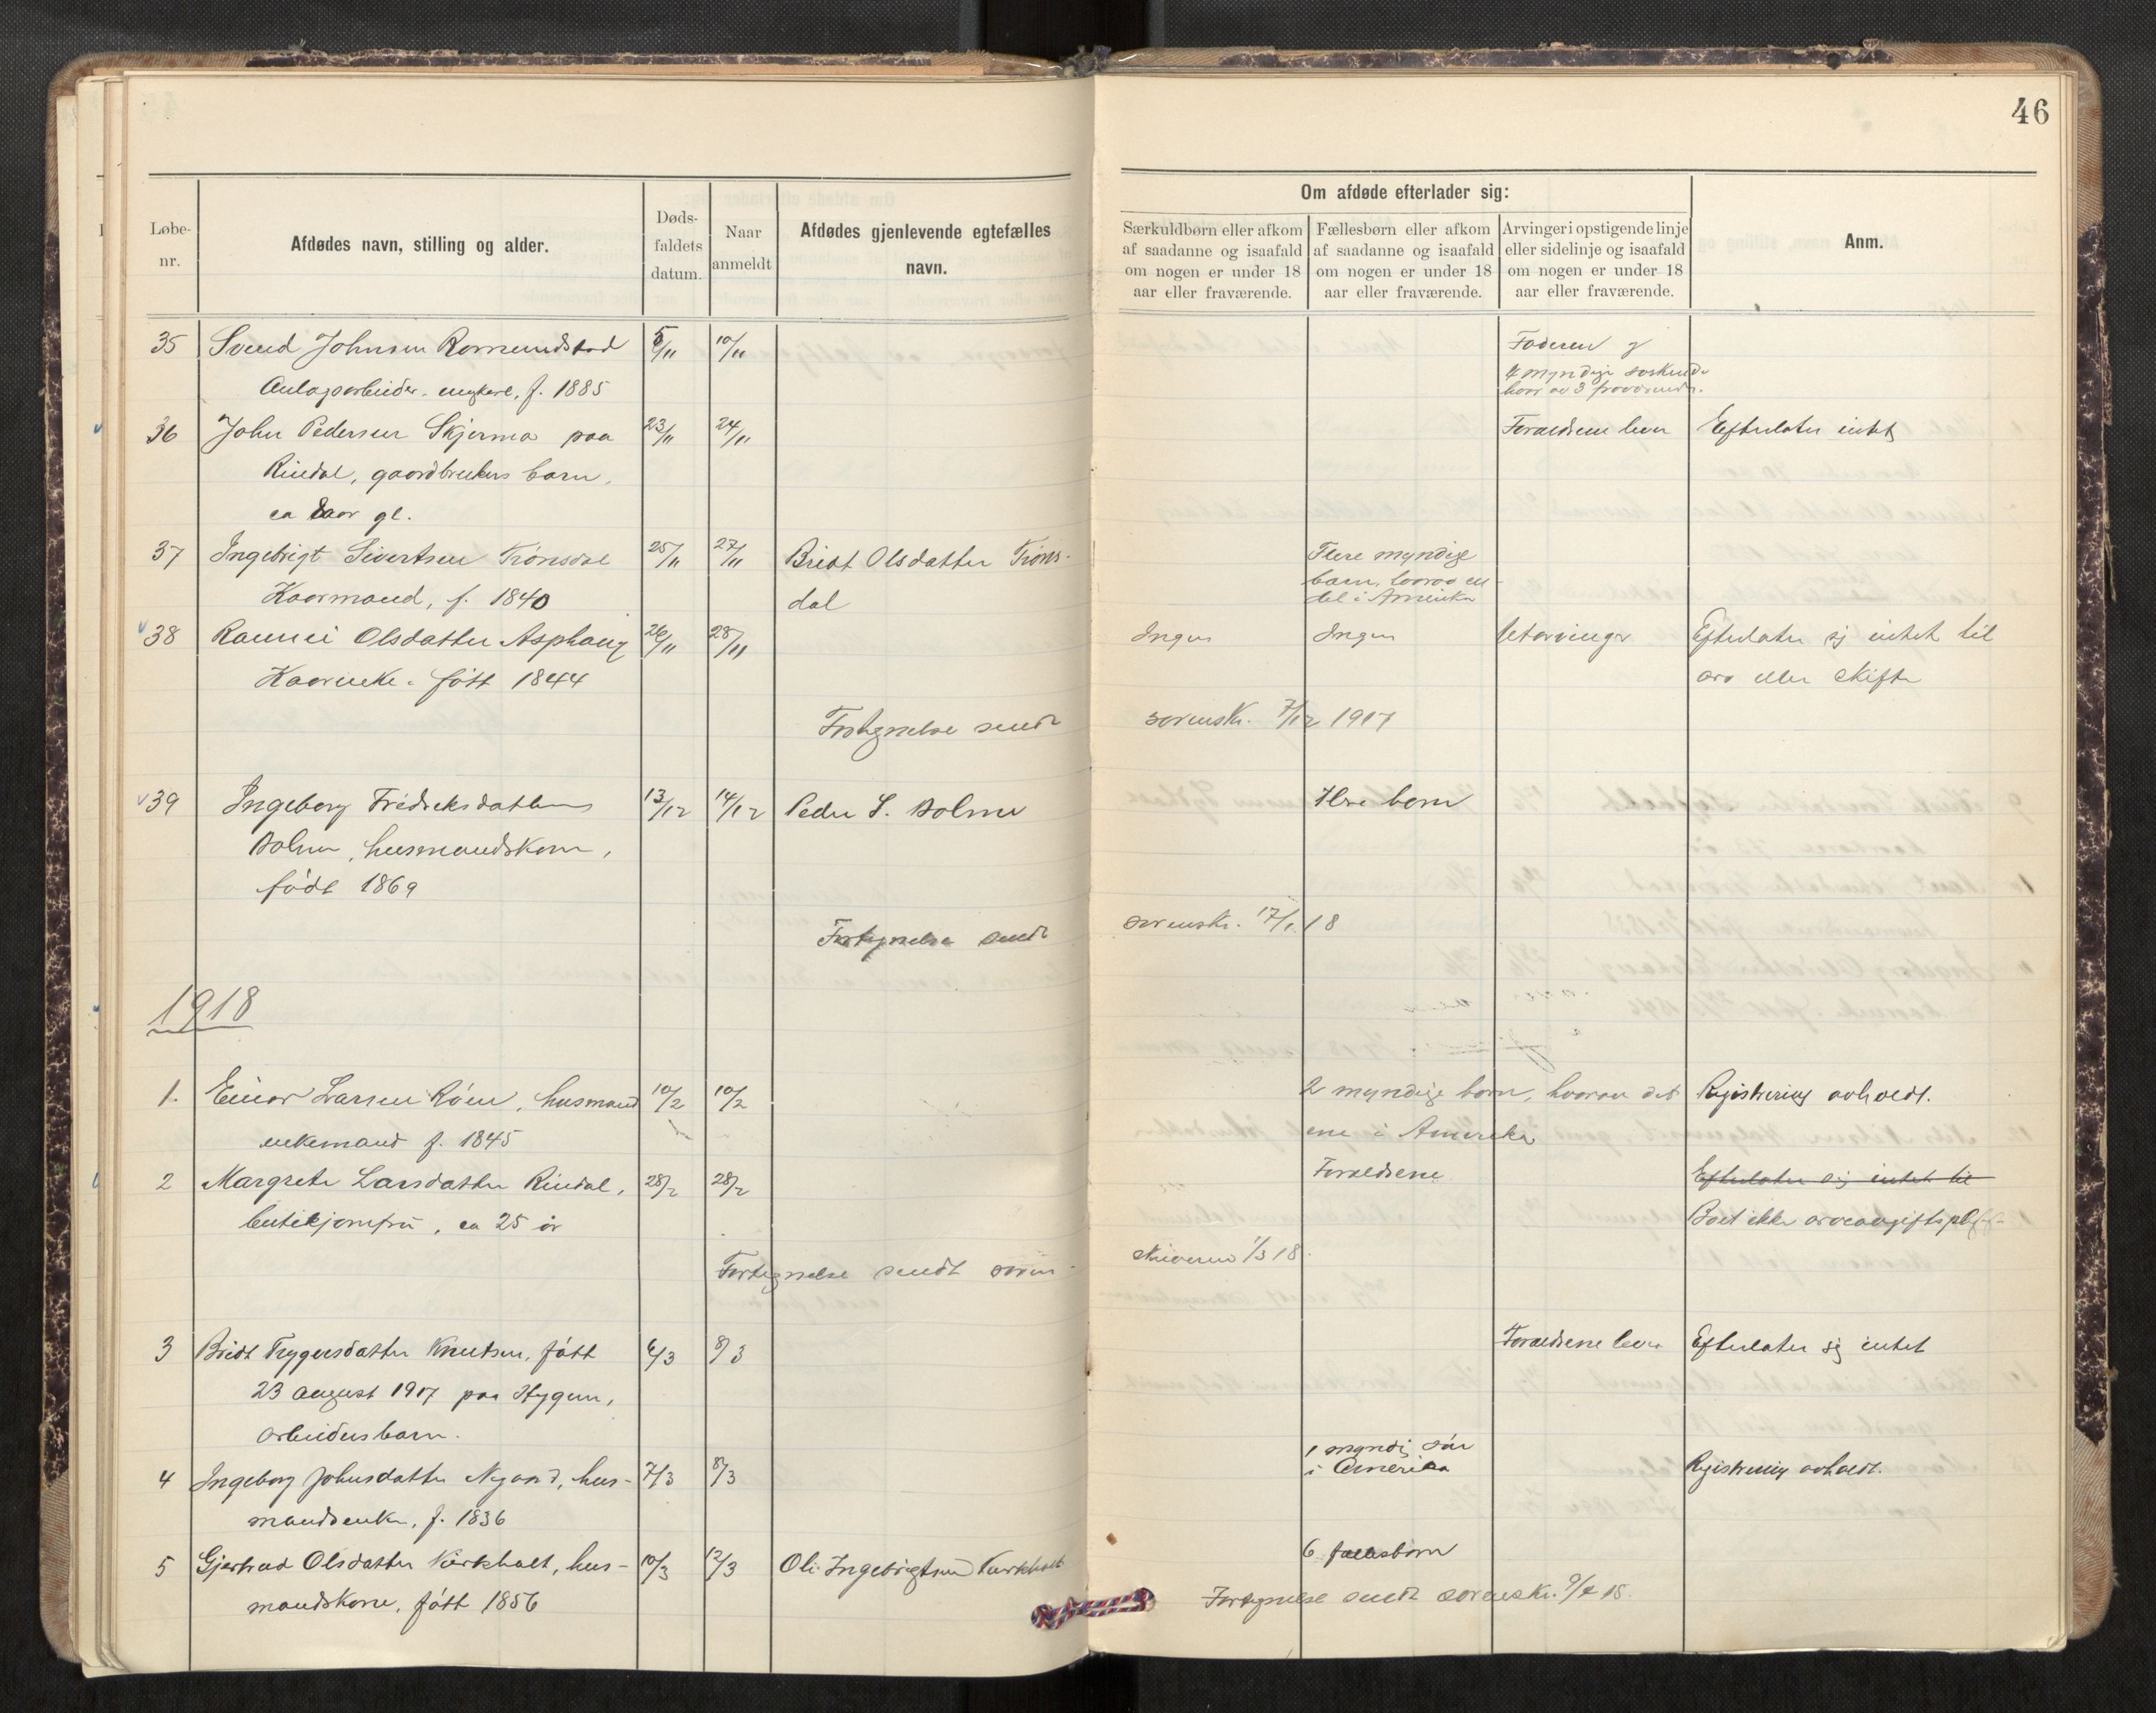 46
Løbe-
nr.
Afdødes navn, stilling og alder.
Døds-
faldets
datum.
Naar
anmeldt
Afdødes gjenlevende egtefælles
navn.
Om afdøde efterlader sig:
Særkuldbørn eller afkom
af saadanne og isaafald
om nogen er under 18
aar eller fraværende.
Fællesbørn eller afkom
af saadanne og isaafald
om nogen er under 18
aar eller fraværende.
Arvinger i opstigende linje
eller sidelinje og isaafald
om nogen er under 18
aar eller fraværende.
Anm.
35 Svend Johnsen Romundstad 5/11 10/11 Faderen og
4 myndige søskende
hvor av 3 fraværende.
Anlægsarbeider. ungkarl, f. 1885
36 John Pedersen Skjermo paa 23/11 24/11 Forældrene lever Efterlater intet
Rindal, gaardbrukers barn,
ca aar gl.
37 Ingebrigt Sivertsen Trønsdal 25/11 27/11 Bridt Olsdatter Trøns- Flere myndige
børn, hvorav en
del i Amerika
Kaarmand, f. 1840 dal
38 Rannei Olsdatter Asphaug 26/11 28/11 Ingen Ingen Utarvinger Efterlater sig intet til
Kaarenke. født 1844 arv eller skifte
Fortegnelse sendt sorenskr. 7/12 1917
39 Ingeborg Fredreksdatter 13/12 14/12 Peder S. Bolme Flere born
Bolme, husmandskone,
født 1869
Fortegnelse sendt sorenskr. 17/1. 18
1918
1. Einar Larsen Røen, husmand 10/2 10/2 2 myndige born, hvorav det Registrering avholdt.
enkemand f. 1845 ene i Amerika
2 Margrete Larsdatter Rindal, 28/2 28/2 Forældrene Efterlater sig intet til
butikjomfru, ca 25 år Boet ikke arveavgiftspl.
Fortegnelse sendt soren- skriveren 1/3 18.
3 Bridt Trygersdatter Knutsen, født 6/3 8/3 Forældrene lever Efterlater sig intet
23 august 1917 paa Hygen,
arbeidersbarn.
4 Ingeborg Johnsdatter Nyand, hus- 7/3 8/3 1 myndig søn
i Amerika Registrering avholdt.
mandsenke, f. 1836
5 Gjertrud Olsdatter Kirkholt, hus- 10/3 12/3 Ole Ingebrigtsen Kirkholt 6 fællesbørn
mandskone, født 1856 Fortegnelse sendt sorenskr. 9/4 18.